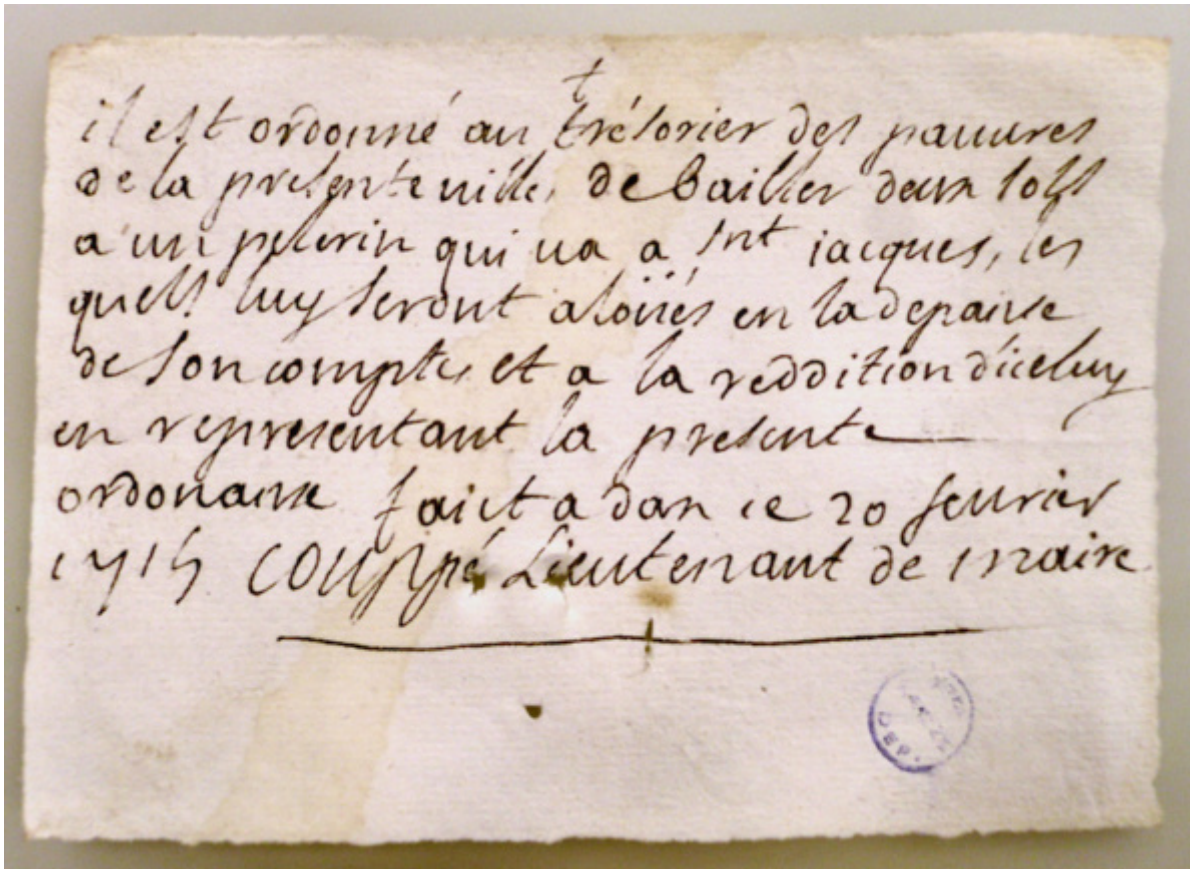 il est ordonné au trésorier des pauures
de la presente uille, de bailler deux solss
a un pelerin qui ua a snt jacques, les
quells luy seront aloüés en la depanse
de son compte, et a la reddition d'iceluy
en representant la presente
ordonanse faict a dax ce 20 feurier
1715 Couppé Lieutenant de maire
DEP.